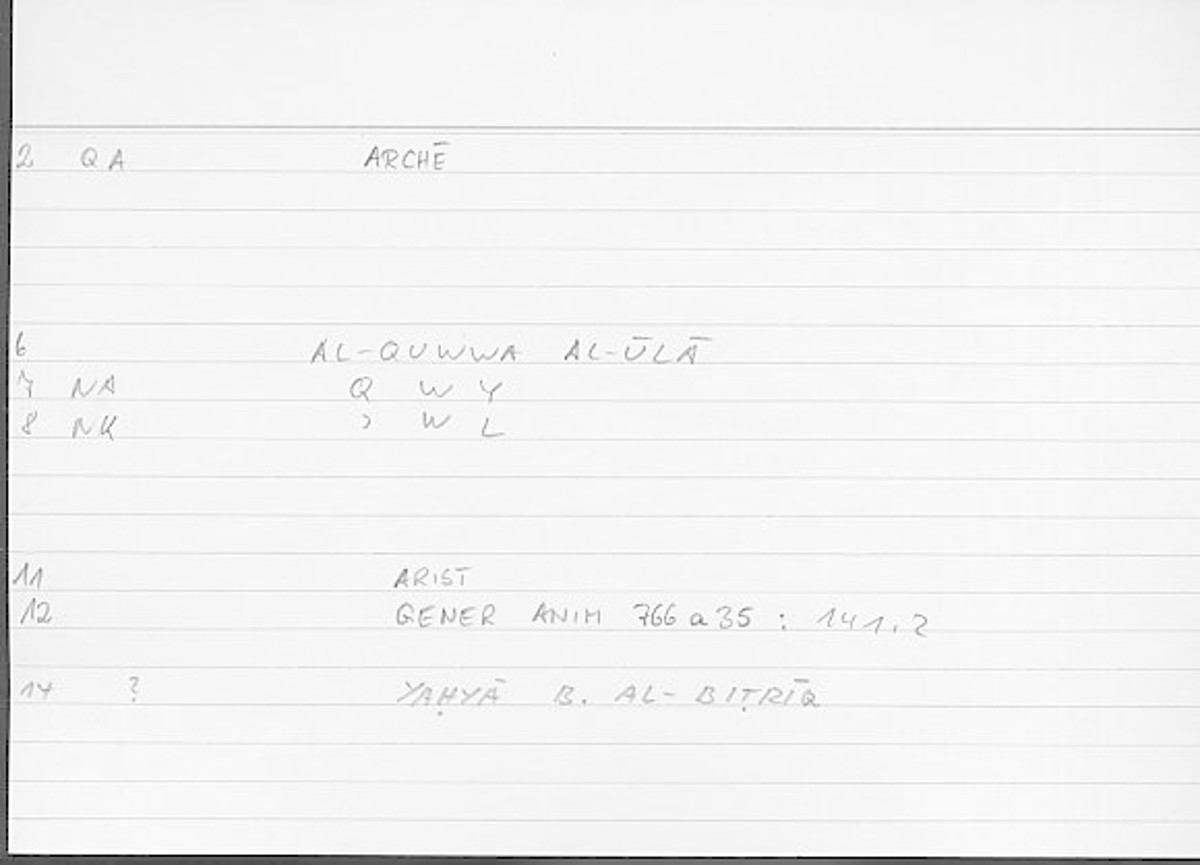 2 QA ARCHĒ
6 AL-QUWWA AL-ŪLĀ
7 NA Q W Y
8 NK ʾ W L
11 ARIST
12 GENER ANIM 766 a 35 : 141.2
14 ? YAḤYĀ B. AL-BIṬRĪQ